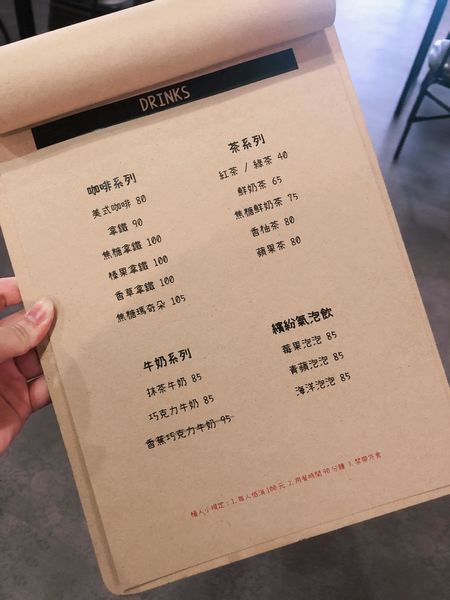 DRINKS
咖啡系列
美式咖啡 80
拿鐵 90
焦糖拿鐵 100
榛果拿鐵 100
香草拿鐵 100
焦糖瑪奇朵 105
茶系列
紅茶 / 綠茶 40
鮮奶茶 65
焦糖鮮奶茶 75
香柚茶 80
蘋果茶 80
牛奶系列
抹茶牛奶 85
巧克力牛奶 85
香蕉巧克力牛奶 95
繽紛氣泡飲
莓果泡泡 85
青蘋泡泡 85
海洋泡泡 85
小規定：1.每人低消100元 2.用餐時間90分鐘 3.禁帶外食